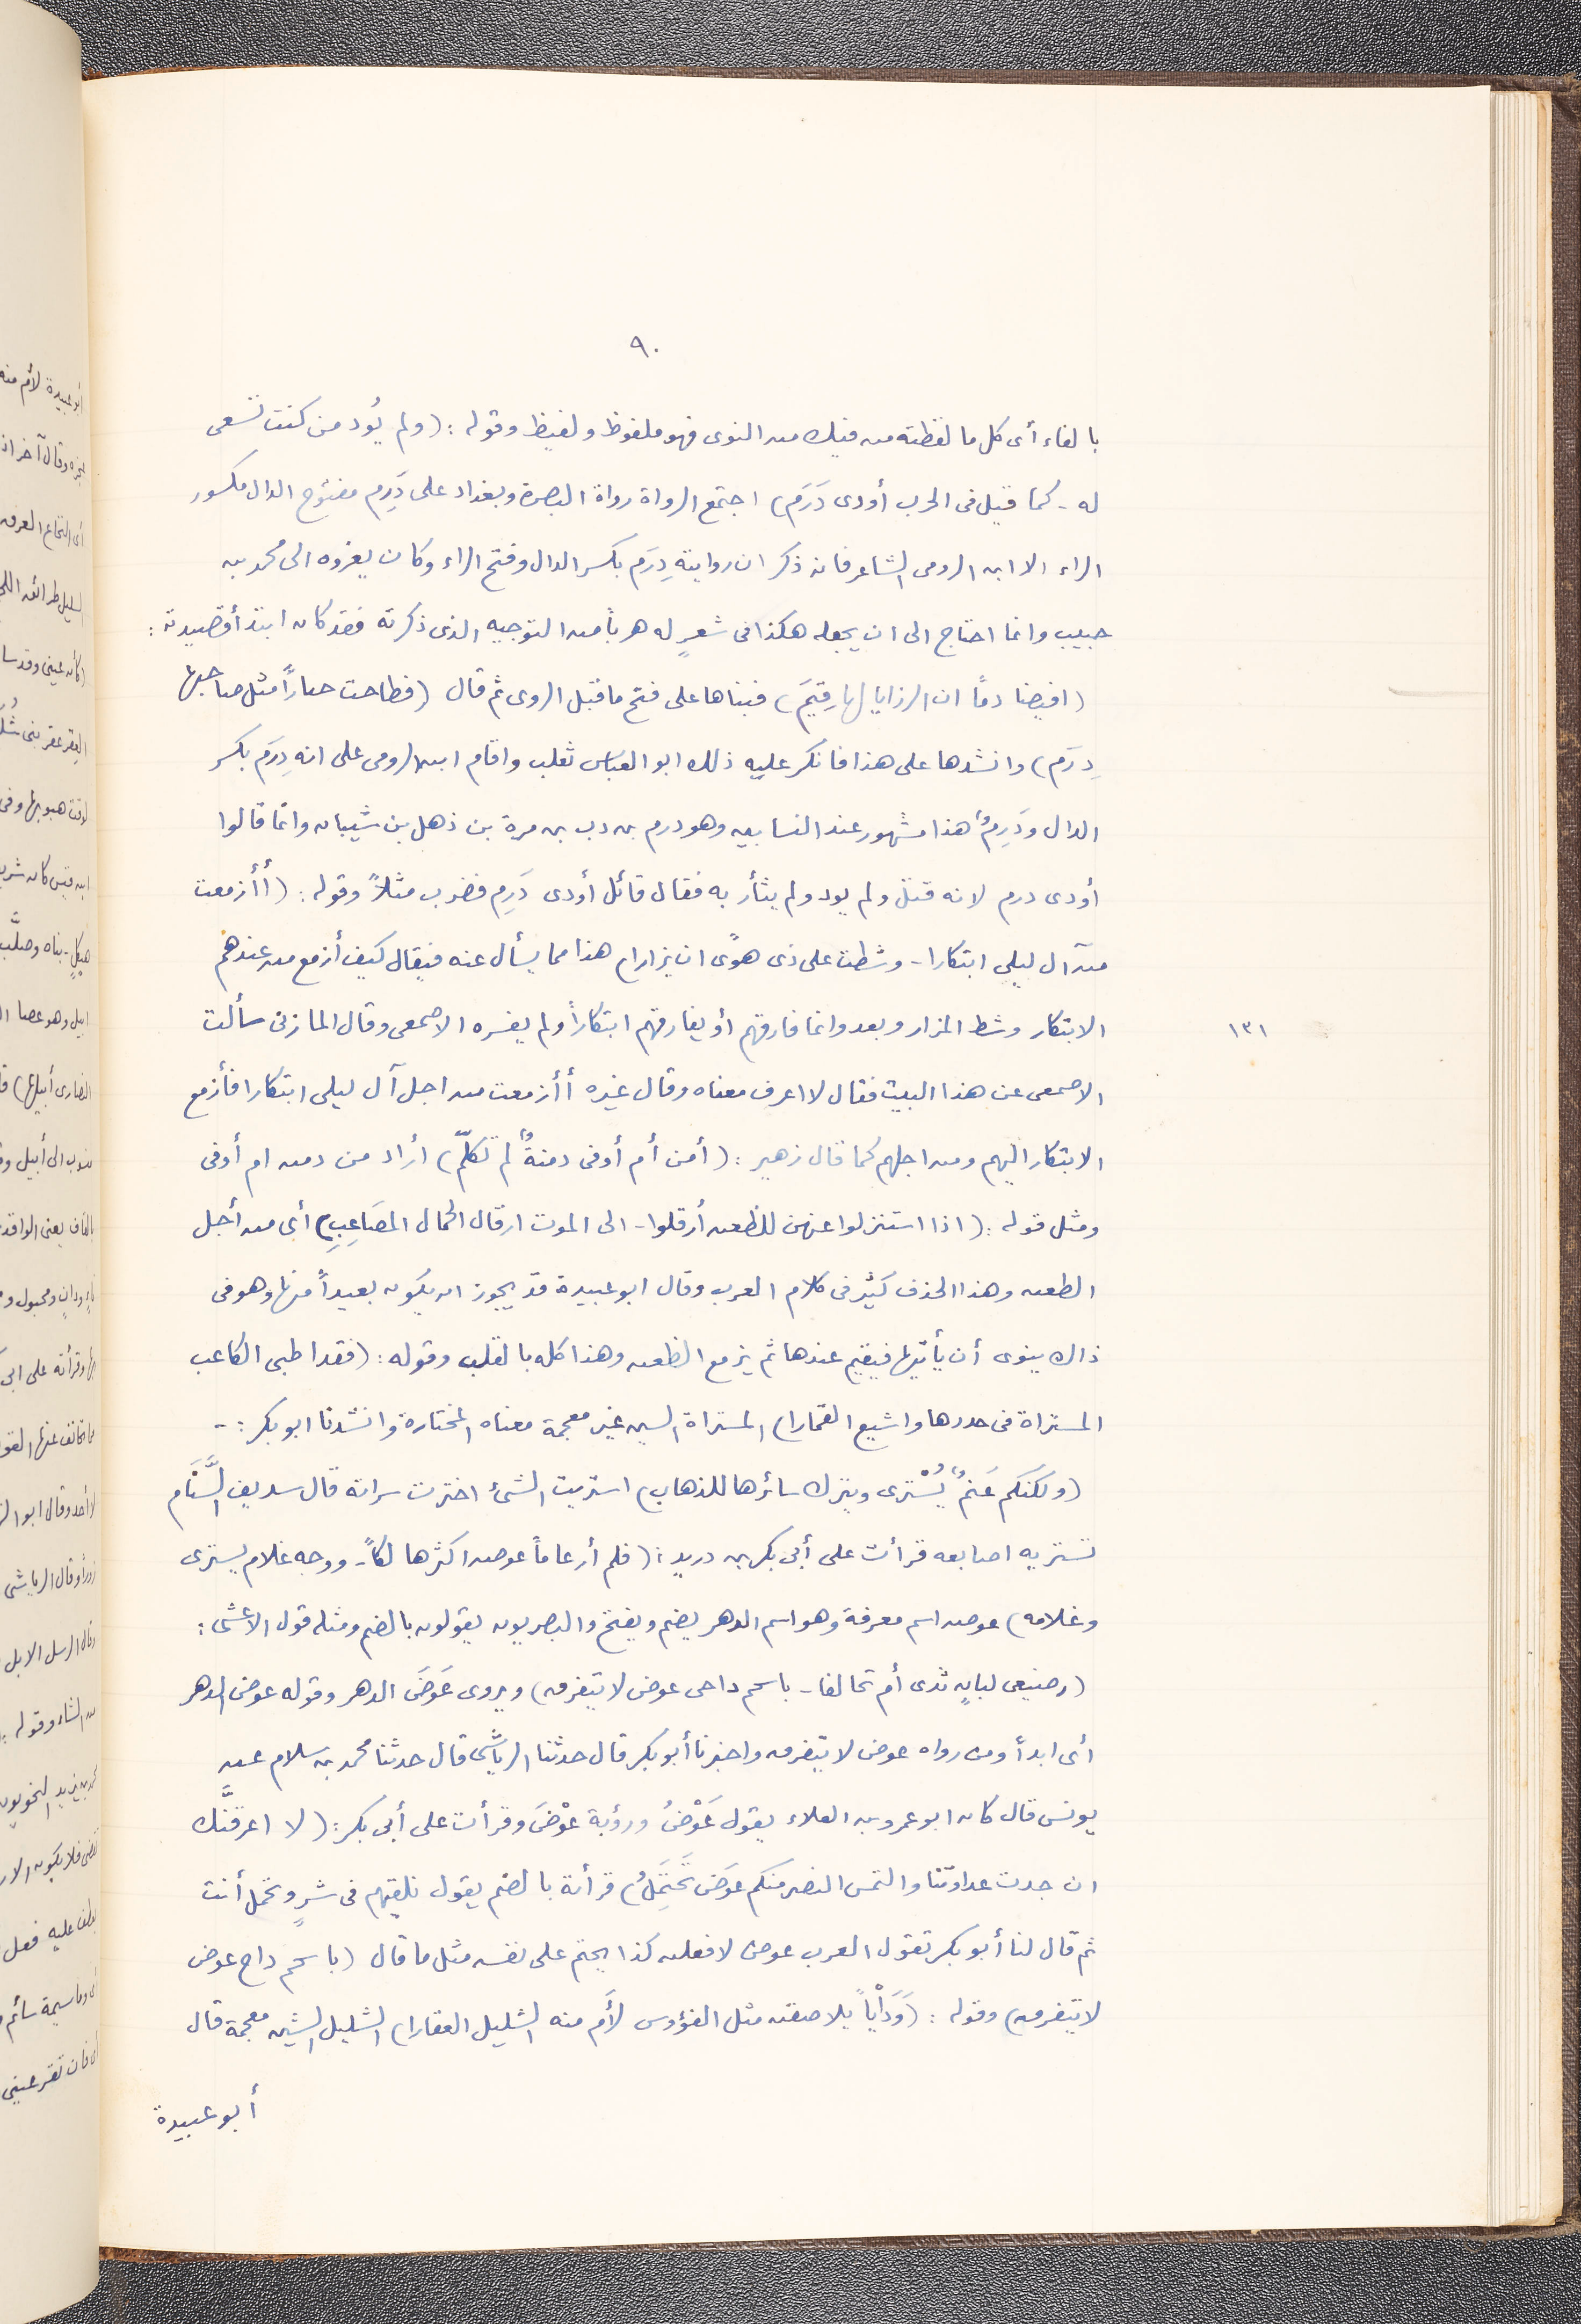 ٩٠
بالفاء أى كل ما لفظته من فيك من النوى فهو ملفوظ ولفيظ وقوله : (ولم يُود من كنت تسعى
له - كما قيل فى الحرب أودى دَرَم) اجتمع الرواة رواة البصرة وبغداد على دَرِم مفتوح الدال مكسور
الراء الا ابن الرومى الشاعر فانه ذكر ان روايته دِرَم بكسر الدال وفتح الراء وكان يعزوه الى محمد بن
حبيب وانما احتاج الى ان يجعله هكذا فى شعرٍ له هرباً من التوجيه الذى ذكرته فقد كان ابتدأ قصيدته :
(افيضا دمًا ان الرزايا لها رقيَم) فبناها على فتح ما قبل الروى ثم قال (فطاحت جباراً مثل صاحبها
دِرَم) وانشدها على هذا فانكر عليه ذلك ابو العباس ثعلب واقام ابن الرومى على انه دِرَم بكسر
الدال ودَرِمٌ هذا مشهور عند النسابين وهو درم بن دب بن مرة بن ذهل بن شيبان وانما قالوا
أودى درم لانه قتل ولم يود ولم يثأر به فقال قائل أودى دَرِم فضرب مثلاً وقوله : (أأزمعت
من آل ليلى ابتكارا - وشطت على ذى هوًى ان يزارا) هذا مما يسأل عنه فيقال كيف أزمع من عندهم
الابتكار وشط المزار وبعد وانما فارقهم أو يفارقهم ابتكاراً ولم يفسره الاصمعى وقال المازنى سألت
١٣١
الاصمعى عن هذا البيت فقال لا اعرف معناه وقال غيره أأزمعت من اجل آل ليلى ابتكارا فأزمع
الابتكار اليهم ومن اجلهم كما قال زهير : (أمن أم أوفى دمنةٌ لم تكلّم) أراد من دمن ام أوفى
ومثل قوله : (اذا استنزلوا عنهن للظعن أرقلوا - الى الموت ارقال الجمال المصَاعِبِ) أى من أجل
الطعن وهذا الحذف كثير فى كلام العرب وقال ابو عبيدة قد يجوز ان يكون بعيداً منها وهو فى
ذاك ينوى أن يأتيها فيقيم عندها ثم يزمع الظعن وهذا كله بالقلب وقوله : (فقد اطبى الكاعب
المستراة فى خدرها واشيع القمارا) المستراة السين غير معجمة معناه المختارة وانشدنا ابو بكر : -
(ولكنكم غَنمٌ يُسْترى ويترك سائرها للذهاب) استريت الشئ اخترت سراته قال سديف السَّنَام
تستريه اصابعه قرأت على أبى بكر بن دريد : (فلم أر عاماً عوض اكثر هالكاً - ووجه غلام يسترى
وغلامه) عوض اسم معرفة وهو اسم الدهر يضم ويفتح والبصريون يقولون بالضم ومثله قول الاعشى :
(رضيعى لبانٍ ثدى أم تحالفا - باسحم داجى عوض لا نتفرق) ويروى عَوَضَ الدهر وقوله عوض الدهر
أى ابداً ومن رواه عوض لا نتفرق واخبرنا أبو بكر قال حدثنا الرياشى قال حدثنا محمد بن سلام عن
يونس قال كان ابو عمرو بن العلاء يقول عَوْضُ ورؤبة عَوْضَ وقرأت على أبى بكر : (لا اعرفَنَّك
ان جدت عداوتنا والتمس النصر منكم عوَض تحتَمَلُ) قرأته بالضم يقول نلقيهم فى شرٍ وتحمل أنت
ثم قال لنا أبو بكر تقول العرب عوض لا فعلن كذا يحتم على نفسه مثل ما قال (باسحم داج عوض
لا نتفرق) وقوله : (وَدَأياً بلا صقته مثل الفؤوس لأَم منه الشليل الفقارا) الشليل الشين معجمة قال
أبو عبيدة